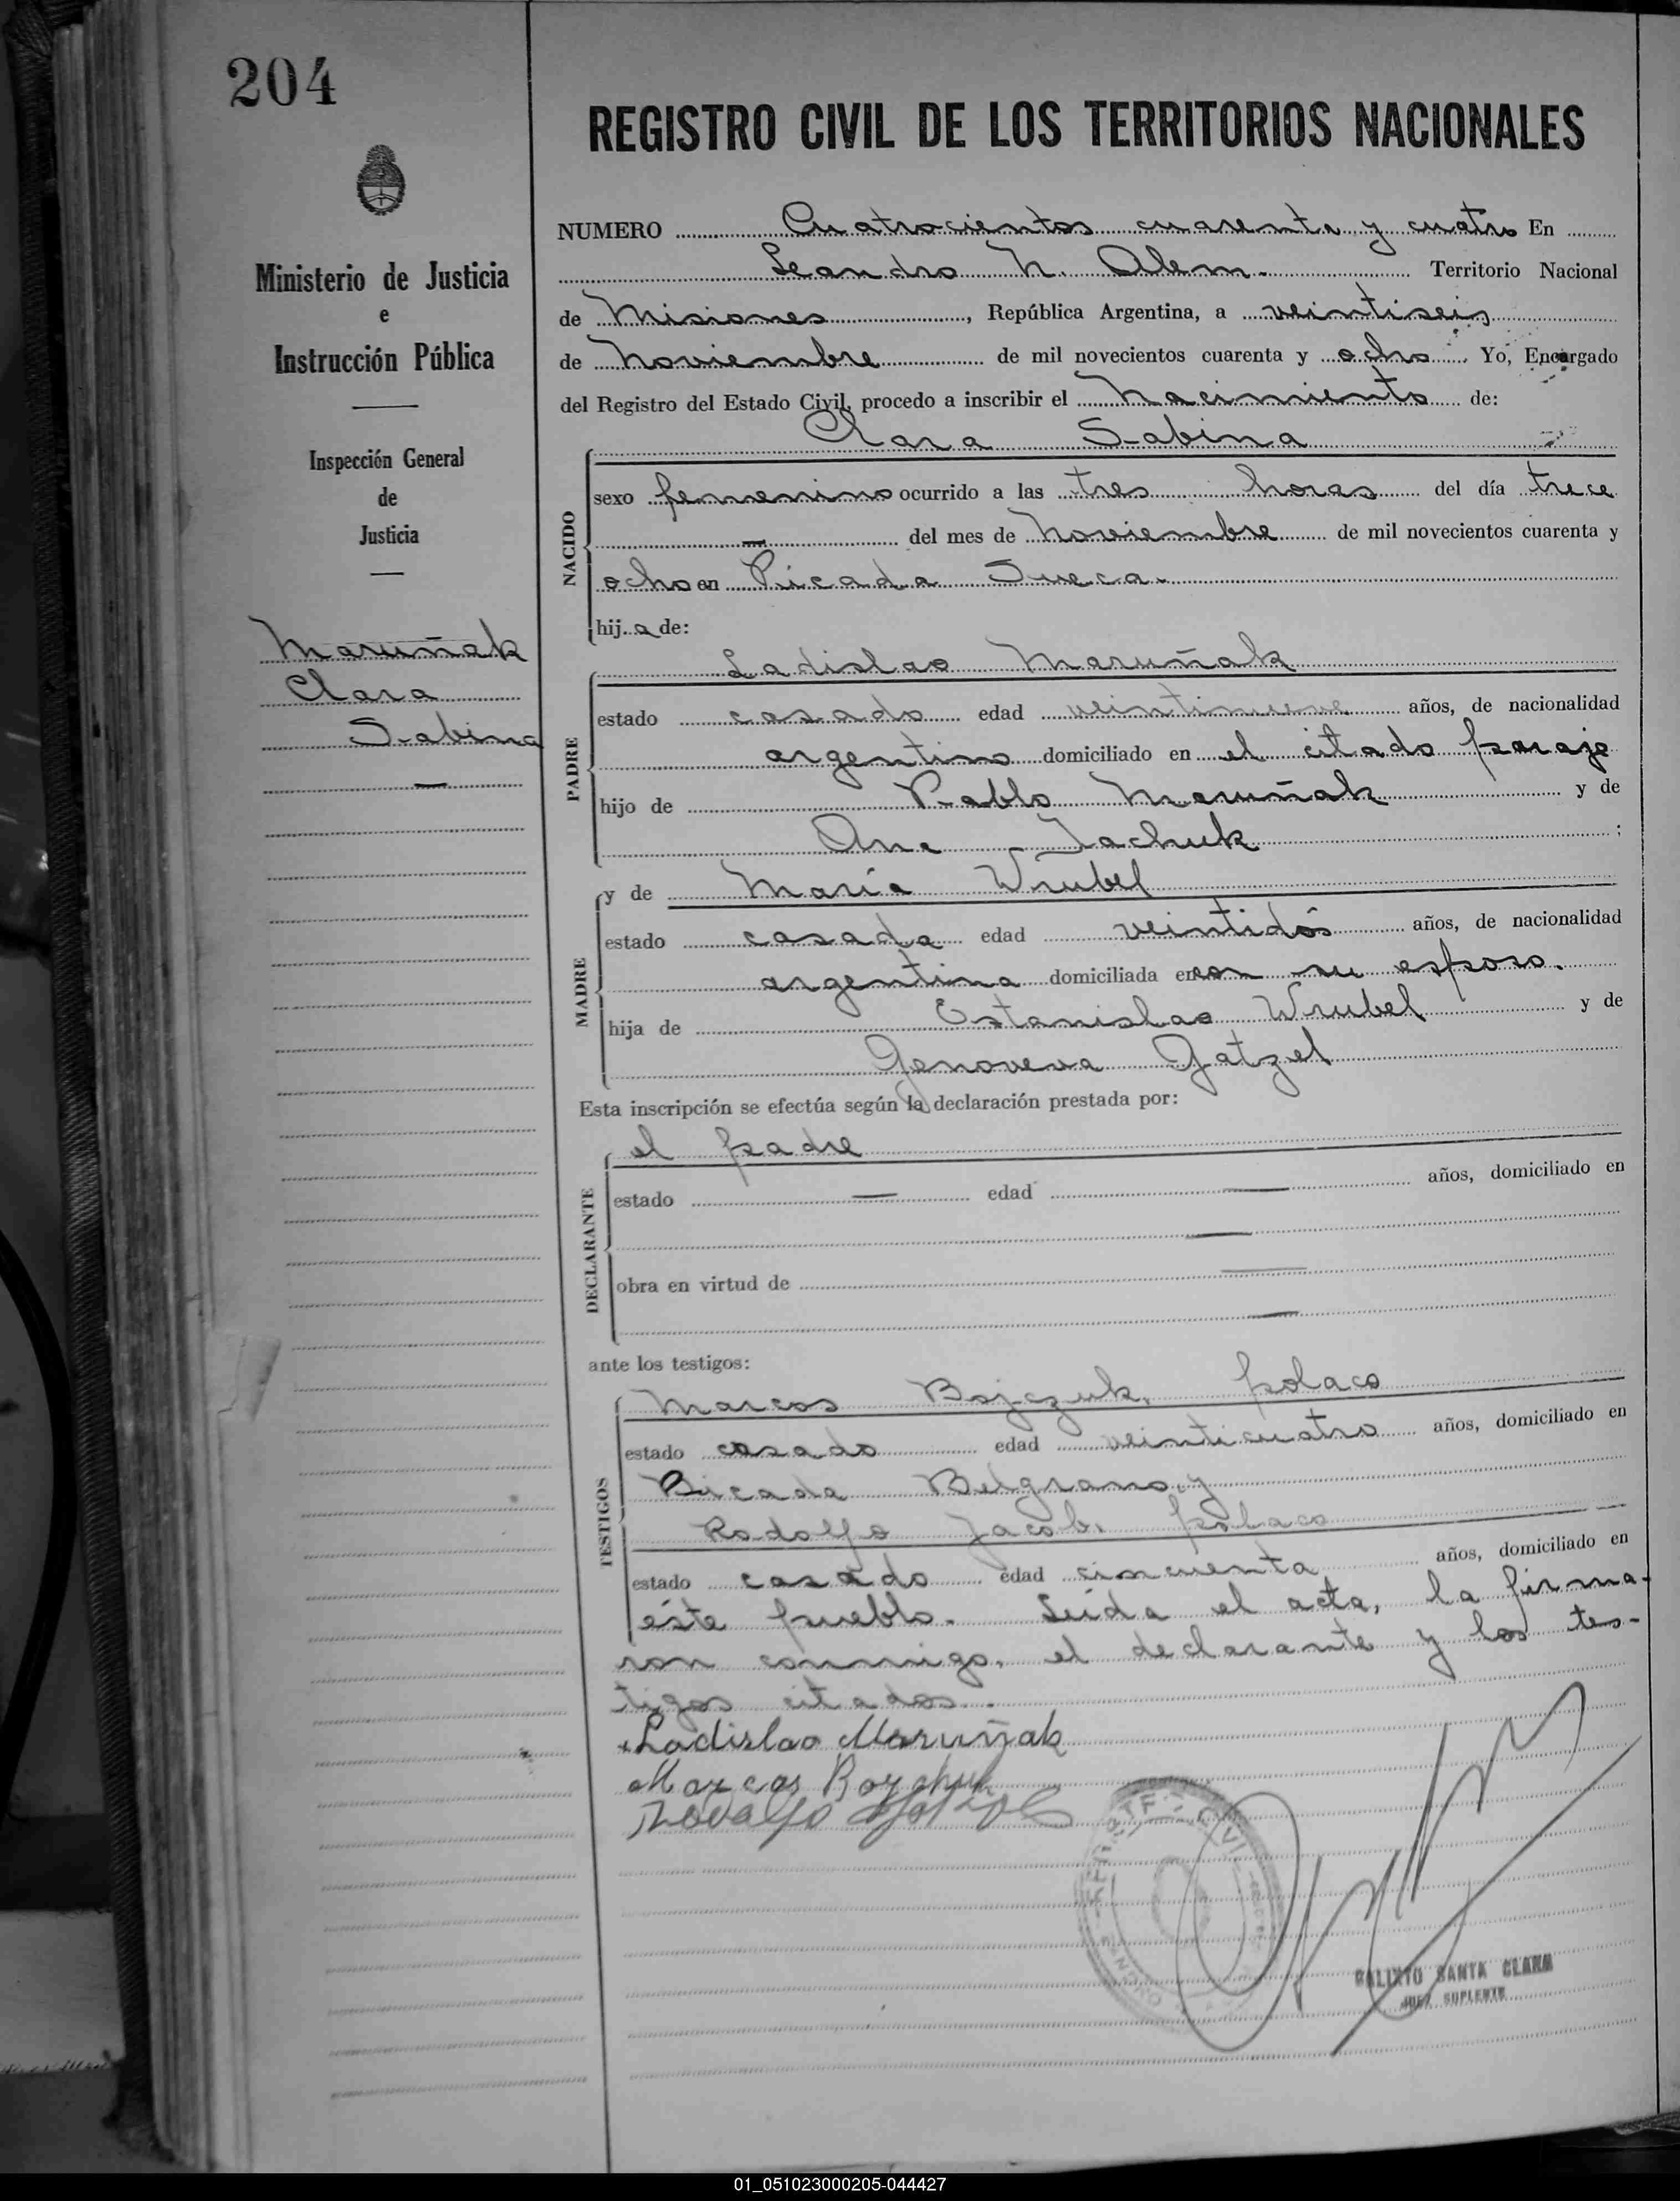 204
REGISTRO CIVIL DE LOS TERRITORIOS NACIONALES
Ministerio de Justicia
e
Instrucción Pública
Inspección General
de
Justicia
Maruñak
Clara
Sabina
—
NUMERO Cuatrocientos cuarenta y cuatro En
Leandro N. Alem. Territorio Nacional
de Misiones, República Argentina, a veintiseis
de Noviembre de mil novecientos cuarenta y ocho. Yo, Encargado
del Registro del Estado Civil, procedo a inscribir el Nacimiento de:
Clara Sabina
NACIDO
sexo femenino ocurrido a las tres horas del día trece
— del mes de Noviembre de mil novecientos cuarenta y
ocho en Picada Sueca.
hija de:
PADRE
Ladislao Maruñak
estado casado edad veintinueve años, de nacionalidad
argentino domiciliado en el citado paraje
hijo de Pablo Maruñak y de
Ana Iachuk ;
MADRE
y de María Wrubel
estado casada edad veintidós años, de nacionalidad
argentina domiciliada en con su esposo.
hija de Estanislao Wrubel y de
Genoveva Gatzel
Esta inscripción se efectúa según la declaración prestada por:
DECLARANTE
el padre
estado — edad — años, domiciliado en
—
obra en virtud de —
—
ante los testigos:
TESTIGOS
Marcos Bojczuk, polaco
estado casado edad veinticuatro años, domiciliado en
Picada Belgrano, y
Rodolfo Jacob, polaco
estado casado edad cincuenta años, domiciliado en
éste pueblo. Leida el acta, la firma-
ron conmigo, el declarante y los tes-
tigos citados.
Ladislao Maruñak
Marcos Boychuk
Rodolfo
CALIXTO SANTA CLARA
JUEZ SUPLENTE
01_051023000205-044427